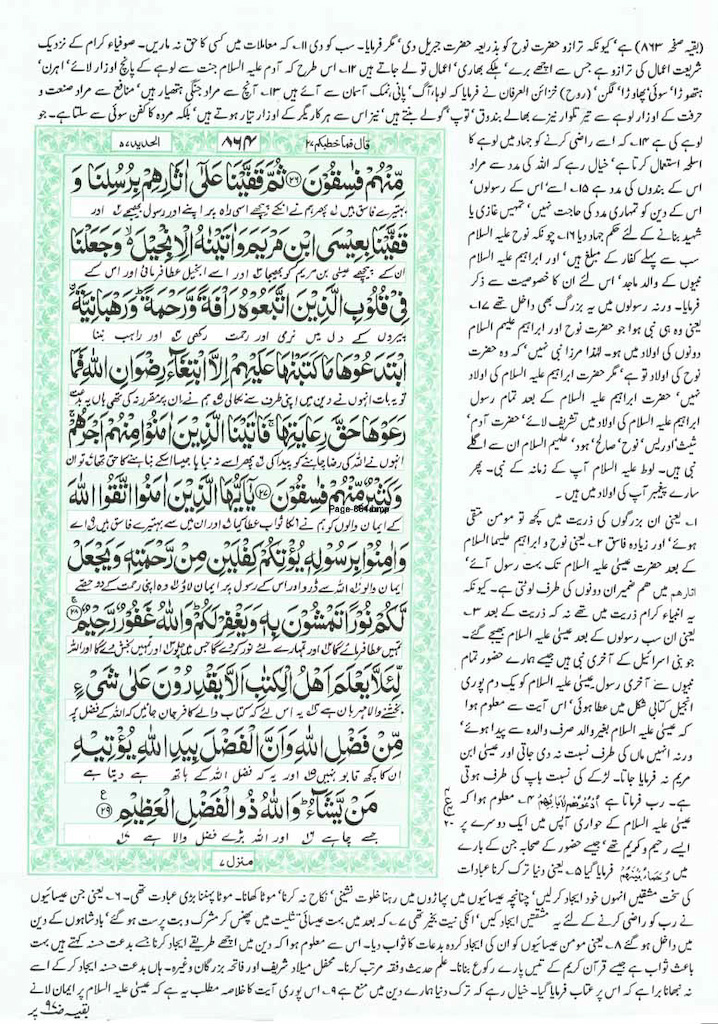 (بقیہ صفحہ ۸۶۳) ہے' کیونکہ ترازو حضرت نوح کو بذریعہ حضرت جبریل دی' مگر فرمایا۔ سب کو دی ۱۱۔ کہ معاملات میں کسی کا حق نہ ماریں۔ صوفیاء کرام کے نزدیک
شریعت اعمال کی ترازو ہے جس سے اچھے برے' ہلکے بھاری' اعمال تو لے جاتے ہیں ۱۲۔ اس طرح کہ آدم علیہ السلام جنت سے لوہے کے پانچ اوزار لائے' اہرن'
ہتھوڑا' سوئی' پھاوڑا' لگن' (روح) خزائن العرفان نے فرمایا کہ لوہا' آگ' پانی' نمک آسمان سے آئے ہیں ۱۳۔ آنچ سے مراد جنگی ہتھیار ہیں' منافع سے مراد صنعت و
حرفت کے اوزار لوہے سے تیر تلوار نیزے بھالے بندوق' توپ' گولے بنتے ہیں' نیز اس سے ہر کاریگر کے اوزار تیار ہوتے ہیں۔ بلکہ مردہ کا کفن سوئی سے سلتا ہے۔ جو
لوہے کی ہے ۱۴۔ کہ اسے راضی کرنے کو جہاد میں لوہے کا
اسلحہ استعمال کرتا ہے' خیال رہے کہ اللہ کی مدد سے مراد
اس کے بندوں کی مدد ہے ۱۵۔ اسے' اس کے رسولوں'
اس کے دین کو تمہاری مدد کی حاجت نہیں' تمہیں غازی یا
شہید بنانے کے لئے حکم جہاد دیا ۱۶۔ چونکہ نوح علیہ السلام
سب سے پہلے کفار کے مبلغ ہیں' اور ابراہیم علیہ السلام
نبیوں کے والد ماجد' اس لئے ان کا خصوصیت سے ذکر
فرمایا۔ ورنہ رسولوں میں یہ بزرگ بھی داخل تھے ۱۷۔
یعنی وہ ہی نبی ہوا جو حضرت نوح اور ابراہیم علیہم السلام
دونوں کی اولاد میں ہو۔ لہٰذا مرزا نبی نہیں' کہ وہ حضرت
نوح کی اولاد تو ہے' مگر حضرت ابراہیم علیہ السلام کی اولاد
نہیں' حضرت ابراہیم علیہ السلام کے بعد تمام رسول
ابراہیم علیہ السلام کی اولاد میں تشریف لائے' حضرت آدم'
شیث' ادریس' نوح' صالح' ہود' علیہم السلام ان سے اگلے
نبی ہیں۔ لوط علیہ السلام آپ کے زمانہ کے نبی۔ پھر
سارے پیغمبر آپ کی اولاد میں ہیں۔
۱۔ یعنی ان بزرگوں کی ذریت میں کچھ تو مومن متقی
ہوئے' اور زیادہ فاسق ۲۔ یعنی نوح و ابراہیم علیہما السلام
کے بعد حضرت عیسٰی علیہ السلام تک بہت رسول آئے'
اثارھم میں ھم ضمیر ان دونوں کی طرف لوٹتی ہے۔ کیونکہ
یہ انبیاء کرام ذریت میں تھے نہ کہ ذریت کے بعد ۳۔
یعنی ان سب رسولوں کے بعد عیسٰی علیہ السلام بھیجے گئے۔
جو بنی اسرائیل کے آخری نبی ہیں جیسے ہمارے حضور تمام
نبیوں سے آخری رسول۔ عیسٰی علیہ السلام کو یک دم پوری
انجیل کتابی شکل میں عطا ہوئی' اس آیت سے معلوم ہوا
کہ عیسٰی علیہ السلام بغیر والد صرف والدہ سے پیدا ہوئے'
ورنہ انہیں ماں کی طرف نسبت نہ دی جاتی اور عیسٰی ابن
مریم نہ فرمایا جاتا۔ لڑکے کی نسبت باپ کی طرف ہوتی
ہے۔ رب فرماتا ہے اُدْعُوْهُمْ لِاٰبَآئِهِمْ ۴۔ معلوم ہوا کہ
عیسٰی علیہ السلام کے حواری آپس میں ایک دوسرے پر
ایسے رحیم و کریم تھے' جیسے حضور کے صحابہ جن کے بارے
میں رُحَمَآءُ بَيْنَهُمْ فرمایا گیا ۵۔ یعنی دنیا ترک کرنا عبادات
قال فما خطبکم ۲۷
۸۶۴
الحدید ۵۷
مِّنْهُمْ فٰسِقُوْنَ ﴿۲۶﴾ ثُمَّ قَفَّيْنَا عَلٰۤى اٰثَارِهِمْ بِرُسُلِنَا وَ
بہتیرے فاسق ہیں پھر ہم نے انکے پیچھے اسی راہ پر اپنے اور رسول بھیجے اور
قَفَّيْنَا بِعِيْسَى ابْنِ مَرْيَمَ وَاٰتَيْنٰهُ الْاِنْجِيْلَ ۙ وَجَعَلْنَا
ان کے پیچھے عیسٰی بن مریم کو بھیجا اور اسے انجیل عطا فرمائی اور اس کے
فِيْ قُلُوْبِ الَّذِيْنَ اتَّبَعُوْهُ رَاْفَةً وَّرَحْمَةً ؕ وَرَهْبَانِيَّةَ
پیروں کے دل میں نرمی اور رحمت رکھی اور راہب بننا
ابْتَدَعُوْهَا مَا كَتَبْنٰهَا عَلَيْهِمْ اِلَّا ابْتِغَآءَ رِضْوَانِ اللّٰهِ فَمَا
تو یہ بات انہوں نے دین میں اپنی طرف سے نکالی ہم نے ان پر مقرر نہ کی تھی ہاں یہ بدعت
رَعَوْهَا حَقَّ رِعَايَتِهَا ۚ فَاٰتَيْنَا الَّذِيْنَ اٰمَنُوْا مِنْهُمْ اَجْرَهُمْ ۚ
انہوں نے اللہ کی رضا چاہنے کو پیدا کی پھر اسے نہ نباہا جیسا اسکے نباہنے کا حق تھا تو ان
وَكَثِيْرٌ مِّنْهُمْ فٰسِقُوْنَ ﴿۲۷﴾ يٰۤاَيُّهَا الَّذِيْنَ اٰمَنُوا اتَّقُوا اللّٰهَ
Page-864.bmp
کے ایمان والوں کو ہم نے انکا ثواب عطا کیا اور ان میں سے بہتیرے فاسق ہیں اے
وَاٰمِنُوْا بِرَسُوْلِهٖ يُؤْتِكُمْ كِفْلَيْنِ مِنْ رَّحْمَتِهٖ وَيَجْعَلْ
ایمان والو اللہ سے ڈرو اور اس کے رسول پر ایمان لاؤ وہ اپنی رحمت کے دو حصے
لَّكُمْ نُوْرًا تَمْشُوْنَ بِهٖ وَيَغْفِرْ لَكُمْ ؕ وَاللّٰهُ غَفُوْرٌ رَّحِيْمٌ ﴿۲۸﴾
تمہیں عطا فرمائے گا اور تمہارے لئے نور کر دے گا جس میں چلو اور تمہیں بخش دے گا اور اللہ
لِّئَلَّا يَعْلَمَ اَهْلُ الْكِتٰبِ اَلَّا يَقْدِرُوْنَ عَلٰى شَيْءٍ
بخشنے والا مہربان ہے یہ اس لئے کہ کتاب والے کافر جان جائیں کہ اللہ کے فضل پر
مِّنْ فَضْلِ اللّٰهِ وَاَنَّ الْفَضْلَ بِيَدِ اللّٰهِ يُؤْتِيْهِ
ان کا کچھ قابو نہیں اور یہ کہ فضل اللہ کے ہاتھ ہے دیتا ہے
مَنْ يَّشَآءُ ؕ وَاللّٰهُ ذُو الْفَضْلِ الْعَظِيْمِ ﴿۲۹﴾
جسے چاہے اور اللہ بڑے فضل والا ہے
منزل ۷
کی سخت مشقتیں انہوں خود ایجاد کر لیں' چنانچہ عیسائیوں میں پہاڑوں میں رہنا خلوت نشینی' نکاح نہ کرنا' موٹا کھانا۔ موٹا پہننا بڑی عبادت تھی۔ ۶۔ یعنی جن عیسائیوں
نے رب کو راضی کرنے کے لئے یہ مشقتیں ایجاد کیں' انکی نیت بخیر تھی ۷۔ کہ بعد میں بہت عیسائی تثلیث میں پھنس کر مشرک و بت پرست ہو گئے' بادشاہوں کے دین
میں داخل ہو گئے ۸۔ یعنی مومن عیسائیوں کو ان کی ایجاد کردہ بدعات کا ثواب دیا۔ اس سے معلوم ہوا کہ دین میں اچھے طریقے ایجاد کرنا جسے بدعت حسنہ کہتے ہیں بہت
باعث ثواب ہے جیسے قرآن کریم کے تیس پارے رکوع بنانا۔ علم حدیث و فقہ مرتب کرنا۔ محفل میلاد شریف اور فاتحہ بزرگان وغیرہ۔ ہاں بدعت حسنہ ایجاد کر کے اسے
نہ نبھانا برا ہے کہ اس پر عتاب فرمایا گیا۔ خیال رہے کہ ترک دنیا ہمارے دین میں منع ہے ۹۔ اس پوری آیت کا خلاصہ مطلب یہ ہے کہ عیسٰی علیہ السلام پر ایمان لانے